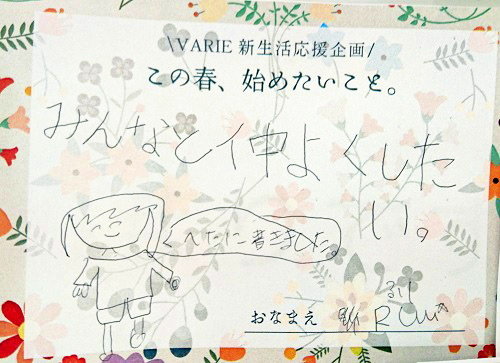 \VARIE 新生活応援企画/
この春、始めたいこと。
みんなと仲よくした
い。
へたに書きました。
おなまえ